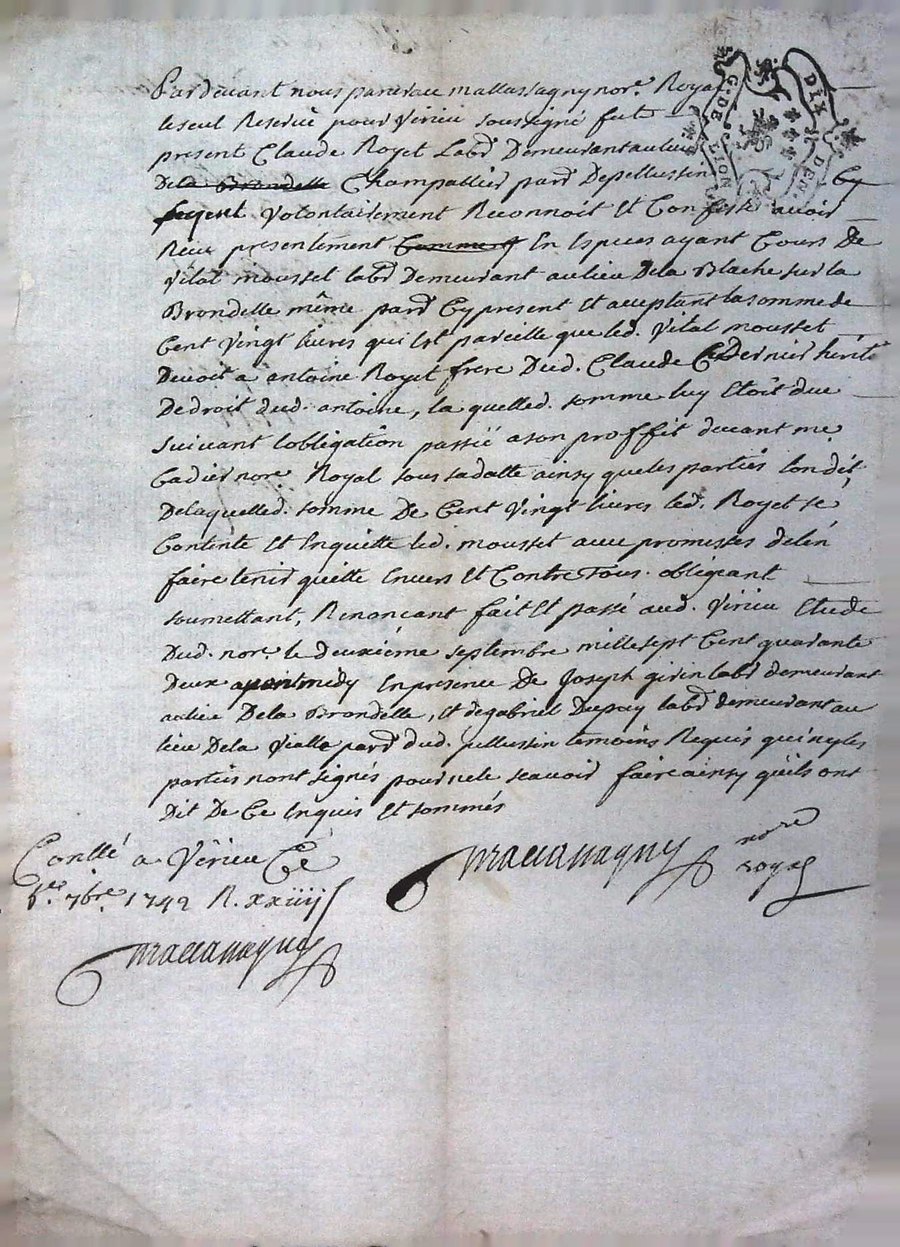 G. DE LION
DIX DEN.
Pardevant nous pancrace mallassagny nore. Royal
le seul Reservé pour Virieu soussigné fut
present Claude Royet Labr. Demeurant au lieu
Dela Brondelle Champallier parr. Depellussin
volontairement Reconnoit Et Confesse avoir
Receu presentement Comment En Especes ayant Cours De
Vital mousset labr. Demeurant au lieu Dela Blache sur la
Brondelle même parr. Cy present Et acceptant la somme de
Cent Vingt livres qui Est pareille que led. Vital mousset
Devoit a antoine Royet frere Dud. Claude Ce Dernier herité
De droit dud. antoine, la quelled. somme luy Etoit due
suivant lobligation passée a son proffit devant me.
Cadier nore. Royal sous sa datte ainsy que les parties lon dit,
Delaquelled. somme De Cent Vingt livres led. Royet se
Contente Et Enquitte led. mousset avec promesses delen
faire tenir quitte Envers Et Contre Tous. obligeant
soumettant, Renonçant fait Et passé aud. Virieu Etude
Dud. nore. le Deuxiéme septembre mille sept Cent quarante
Deux apres midy En presence De Joseph girin labr. demeurant
au lieu Dela Brondelle, Et de gabriel Dupuy labr. demeurant au
lieu Dela Vialle parr. dud. pellussin temoins Requis qui ny les
parties nont signés pour ne le scavoir faire ainsy quils ont
Dit De Ce Enquis Et sommés
Conllé a Vérieu Ce
7bre 1742 R. xxiiii s
nore
royal